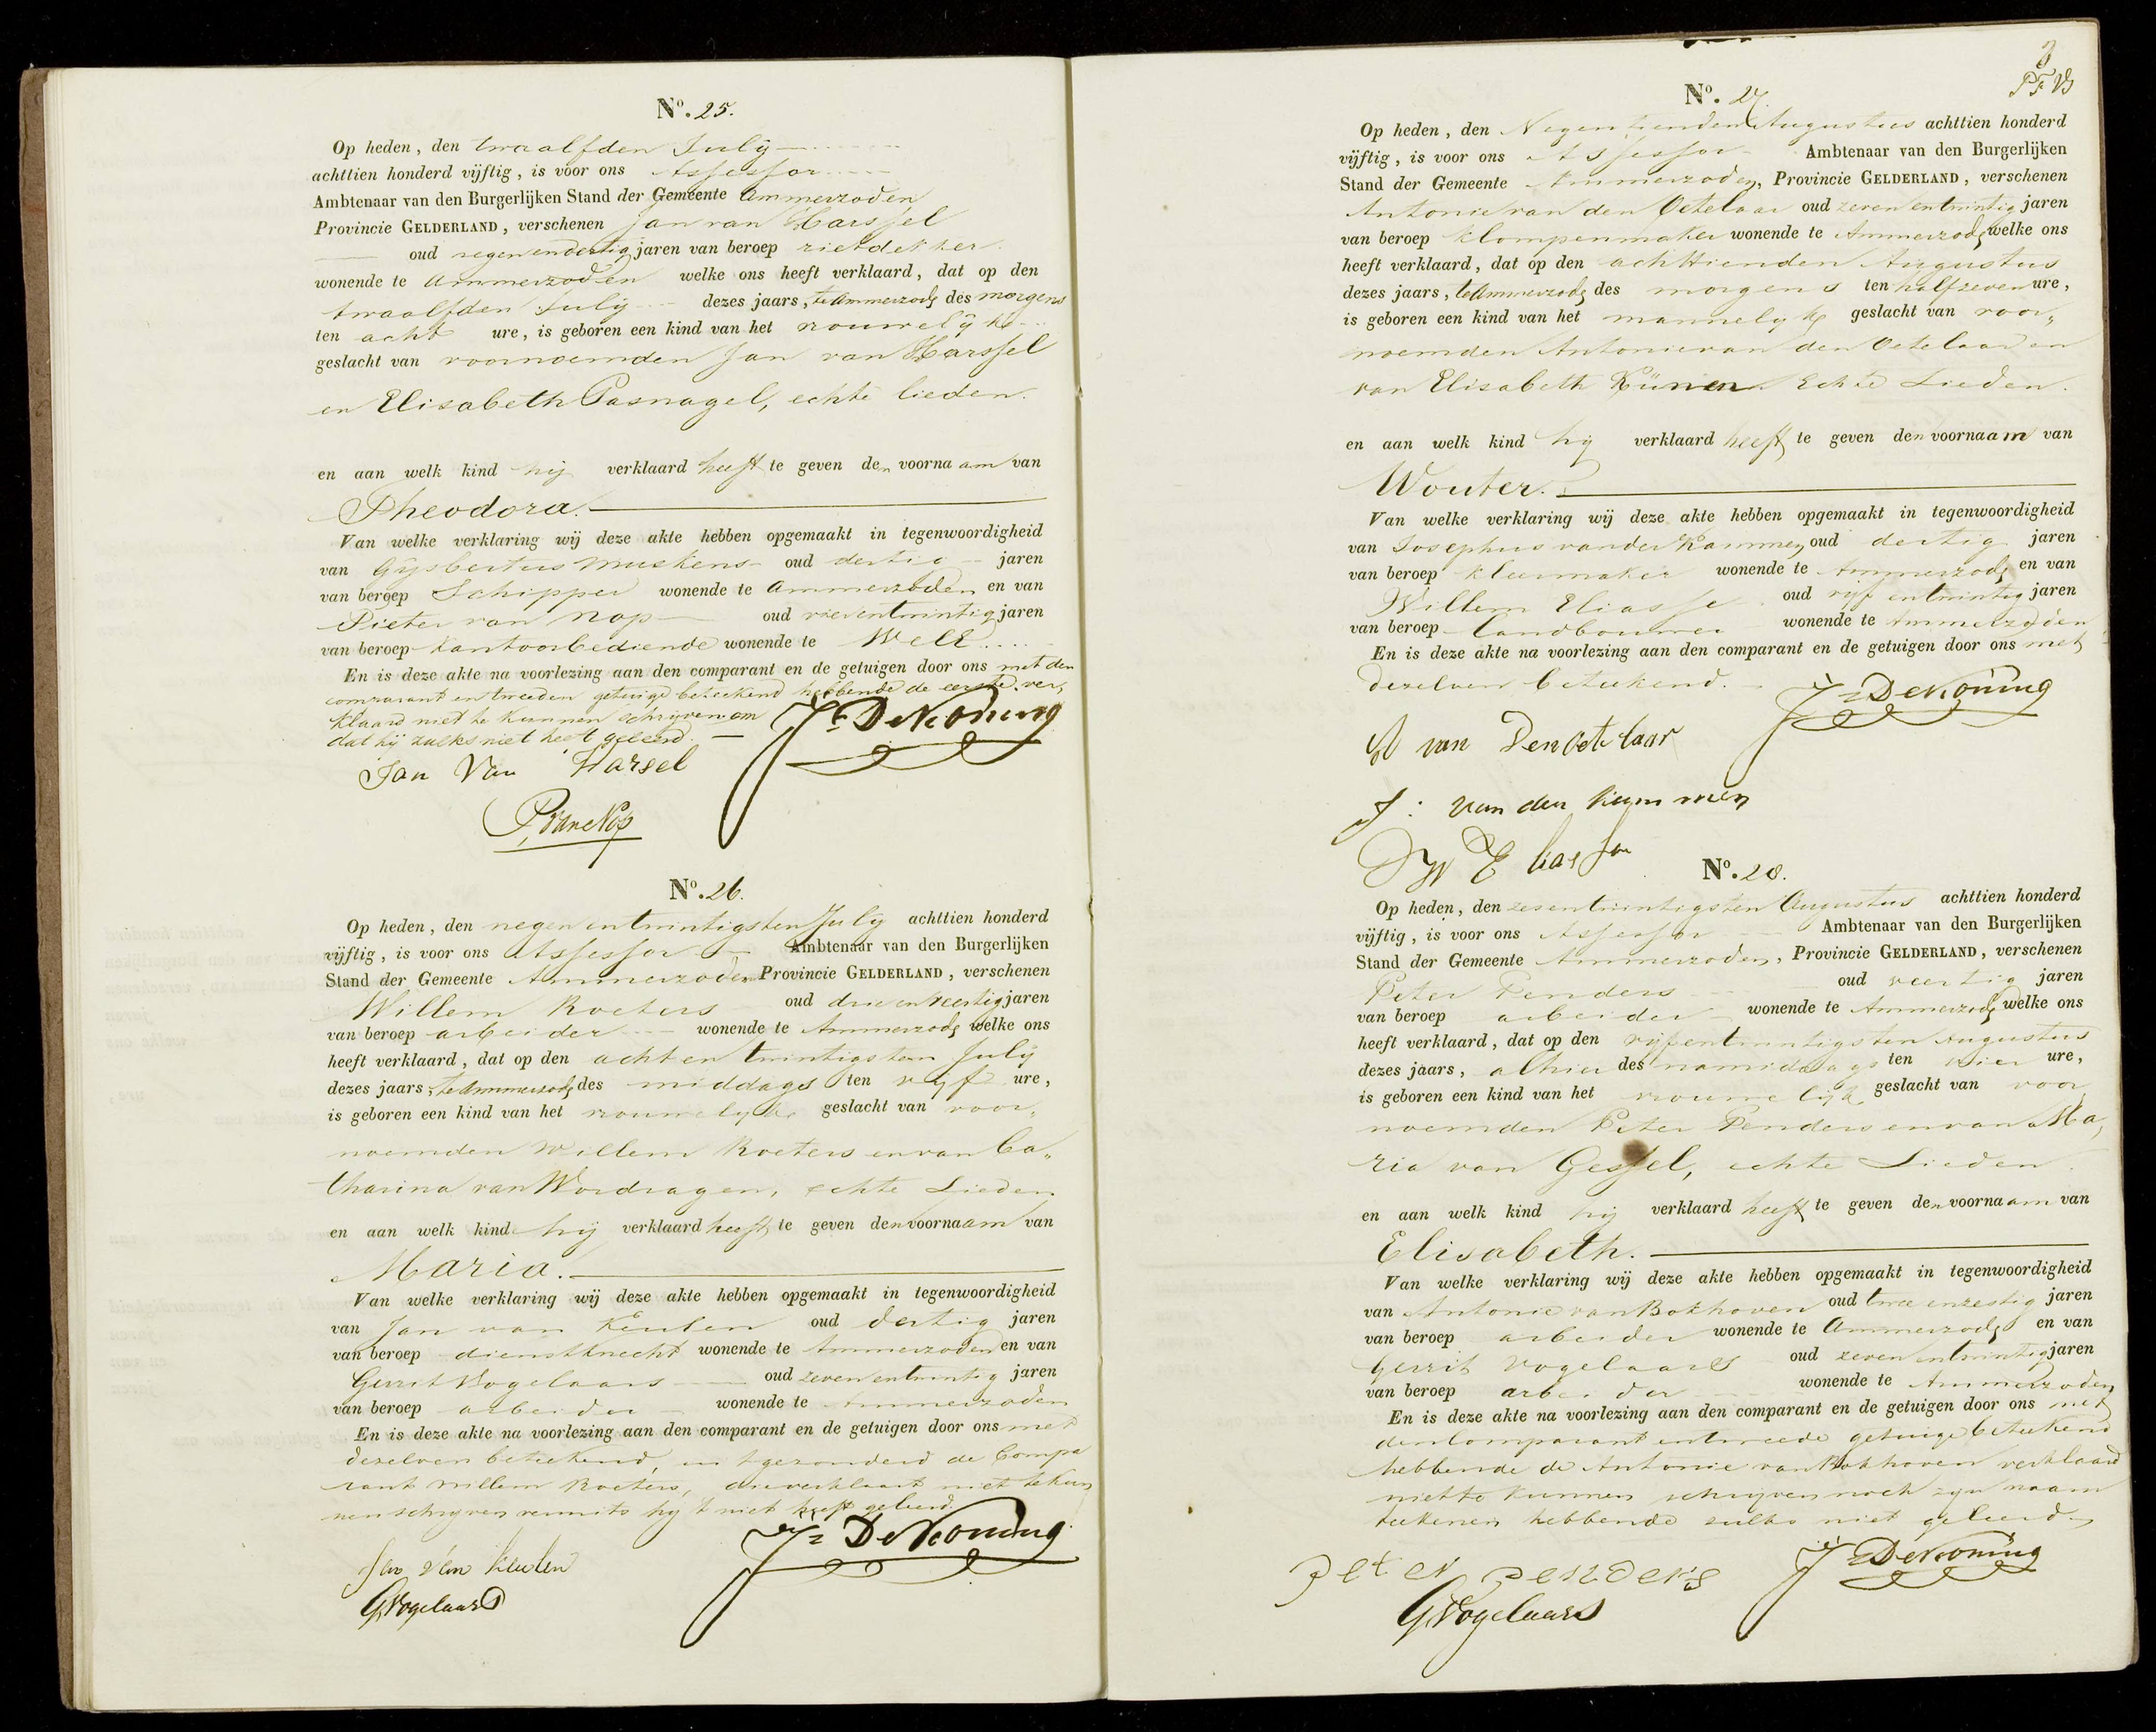 No. 25.
Op heden, den twaalfden Julij
achttien honderd vijftig, is voor ons Assessor
Ambtenaar van den Burgerlijken Stand der Gemeente Ammerzoden
Provincie GELDERLAND, verschenen Jan van Harssel
oud negenendertig jaren van beroep rietdekker
wonende te Ammerzoden welke ons heeft verklaard, dat op den
twaalfden Julij dezes jaars, te Ammerzode des morgens
ten acht ure, is geboren een kind van het vrouwelijke
geslacht van voornoemden Jan van Harssel
en Elisabeth Pasnagel, echte lieden.
en aan welk kind hij verklaard heeft te geven den voornaam van
Theodora.
Van welke verklaring wij deze akte hebben opgemaakt in tegenwoordigheid
van Gijsbertus Muskens oud dertig jaren
van beroep Schipper wonende te Ammerzoden en van
Pieter van Nop oud vierentwintig jaren
van beroep Kantoorbediende wonende te Well
En is deze akte na voorlezing aan den comparant en de getuigen door ons met den
comparant en tweeden getuige beteekend hebbende de eerste ver,
klaard niet te kunnen schrijven om
dat hij zulks niet heeft geleerd.
Js DeKoning
Jan Van Harsel
P. van Nop
No. 26.
Op heden, den negenentwintigsten Julij achttien honderd
vijftig, is voor ons Assessor Ambtenaar van den Burgerlijken
Stand der Gemeente Ammerzoden Provincie GELDERLAND, verschenen
Willem Roeters oud drieenveertig jaren
van beroep arbeider wonende te Ammerzode welke ons
heeft verklaard, dat op den achtentwintigsten Julij
dezes jaars, te Ammerzode des middags ten vijf ure,
is geboren een kind van het vrouwelijke geslacht van voor,
noemden Willem Roeters en van Ca,,
tharina van Wordragen, echte Lieden
en aan welk kind hij verklaard heeft te geven den voornaam van
Maria.
Van welke verklaring wij deze akte hebben opgemaakt in tegenwoordigheid
van Jan van Keulen oud dertig jaren
van beroep dienstknecht wonende te Ammerzoden en van
Gerrit Vogelaars oud zevenentwintig jaren
van beroep arbeider wonende te Ammerzoden
En is deze akte na voorlezing aan den comparant en de getuigen door ons met
dezelven beteekend, uitgezonderd de Compa
rant Willem Roeters, die verklaart niet te kun
nen schrijven vermits hij 't niet heeft geleerd
Js DeKoning
Jan Van Keulen
GVogelaars
3
No. 27.
Op heden, den Negentienden Augustus achttien honderd
vijftig, is voor ons Assessor Ambtenaar van den Burgerlijken
Stand der Gemeente Ammerzoden, Provincie GELDERLAND, verschenen
Antonie van den Oetelaar oud zevenentwintig jaren
van beroep klompenmaker wonende te Ammerzode welke ons
heeft verklaard, dat op den achttienden Augustus
dezes jaars, te Ammerzode des morgens ten half zeven ure,
is geboren een kind van het mannelijk geslacht van voor,,
noemden Antonie van den Oetelaar en
van Elisabeth Künen. Echte Lieden.
en aan welk kind hij verklaard heeft te geven den voornaam van
Wouter.
Van welke verklaring wij deze akte hebben opgemaakt in tegenwoordigheid
van Josephus van der Kammen oud dertig jaren
van beroep kleermaker wonende te Ammerzode en van
Willem Eliasse oud vijfentwintig jaren
van beroep landbouwer wonende te Ammerzoden
En is deze akte na voorlezing aan den comparant en de getuigen door ons met
dezelven beteekend.
Js DeKoning
A van Den oetelaar
J: van der kammen
W Eliasse
No. 28.
Op heden, den zesentwintigsten Augustus achttien honderd
vijftig, is voor ons Assessor Ambtenaar van den Burgerlijken
Stand der Gemeente Ammerzoden, Provincie GELDERLAND, verschenen
Peter Penders oud veertig jaren
van beroep arbeider wonende te Ammerzode welke ons
heeft verklaard, dat op den vijfentwintigsten Augustus
dezes jaars, alhier des namiddags ten vier ure,
is geboren een kind van het vrouwelijk geslacht van voor
noemden Peter Penders en van Ma,
ria van Gessel, echte Lieden.
en aan welk kind hij verklaard heeft te geven den voornaam van
Elisabeth.
Van welke verklaring wij deze akte hebben opgemaakt in tegenwoordigheid
van Antonie van Bokhoven oud twee enzestig jaren
van beroep arbeider wonende te Ammerzode en van
Gerrit Vogelaars oud zevenentwintig jaren
van beroep arbeider wonende te Ammerzoden
En is deze akte na voorlezing aan den comparant en de getuigen door ons met
den Comparant en tweede getuige beteekend
hebbende de Antonie van Bokhoven verklaard
niet te kunnen schrijven noch zijn naam
teekenen hebbende zulks niet geleerd
Js DeKoning
Peter Penders
GVogelaars